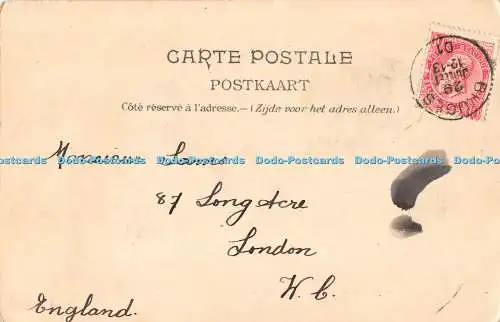 CARTE POSTALE
POSTKAART
Côté réservé à l'adresse.—(Zijde voor het adres alleen.)
Dodo-Postcards Dodo-Postcards Dodo-Postcards Dodo-Postcards Dodo-Postcards
Monsieur
87 Long Acre
London
W. C.
England.
BRUGES
29
JUIL
12-13